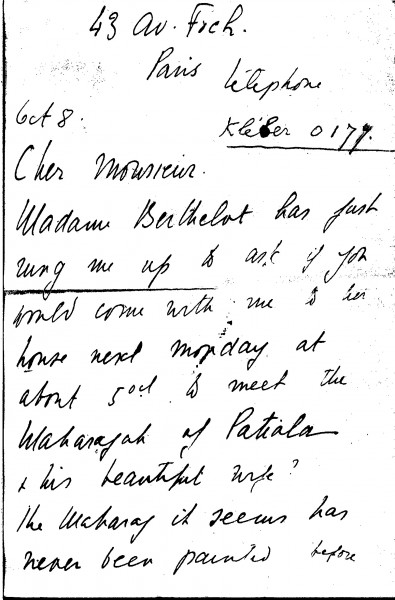 43 Av. Foch.
Paris
téléphone
Oct 8.
Kléber 0177.
Cher Monsieur.
Madame Berthelot has just
rung me up to ask if you
would come with me to her
house next monday at
about 5 ocl to meet the
Maharajah of Patiala
& his beautiful wife?
the Maharaj it seems has
never been painted before